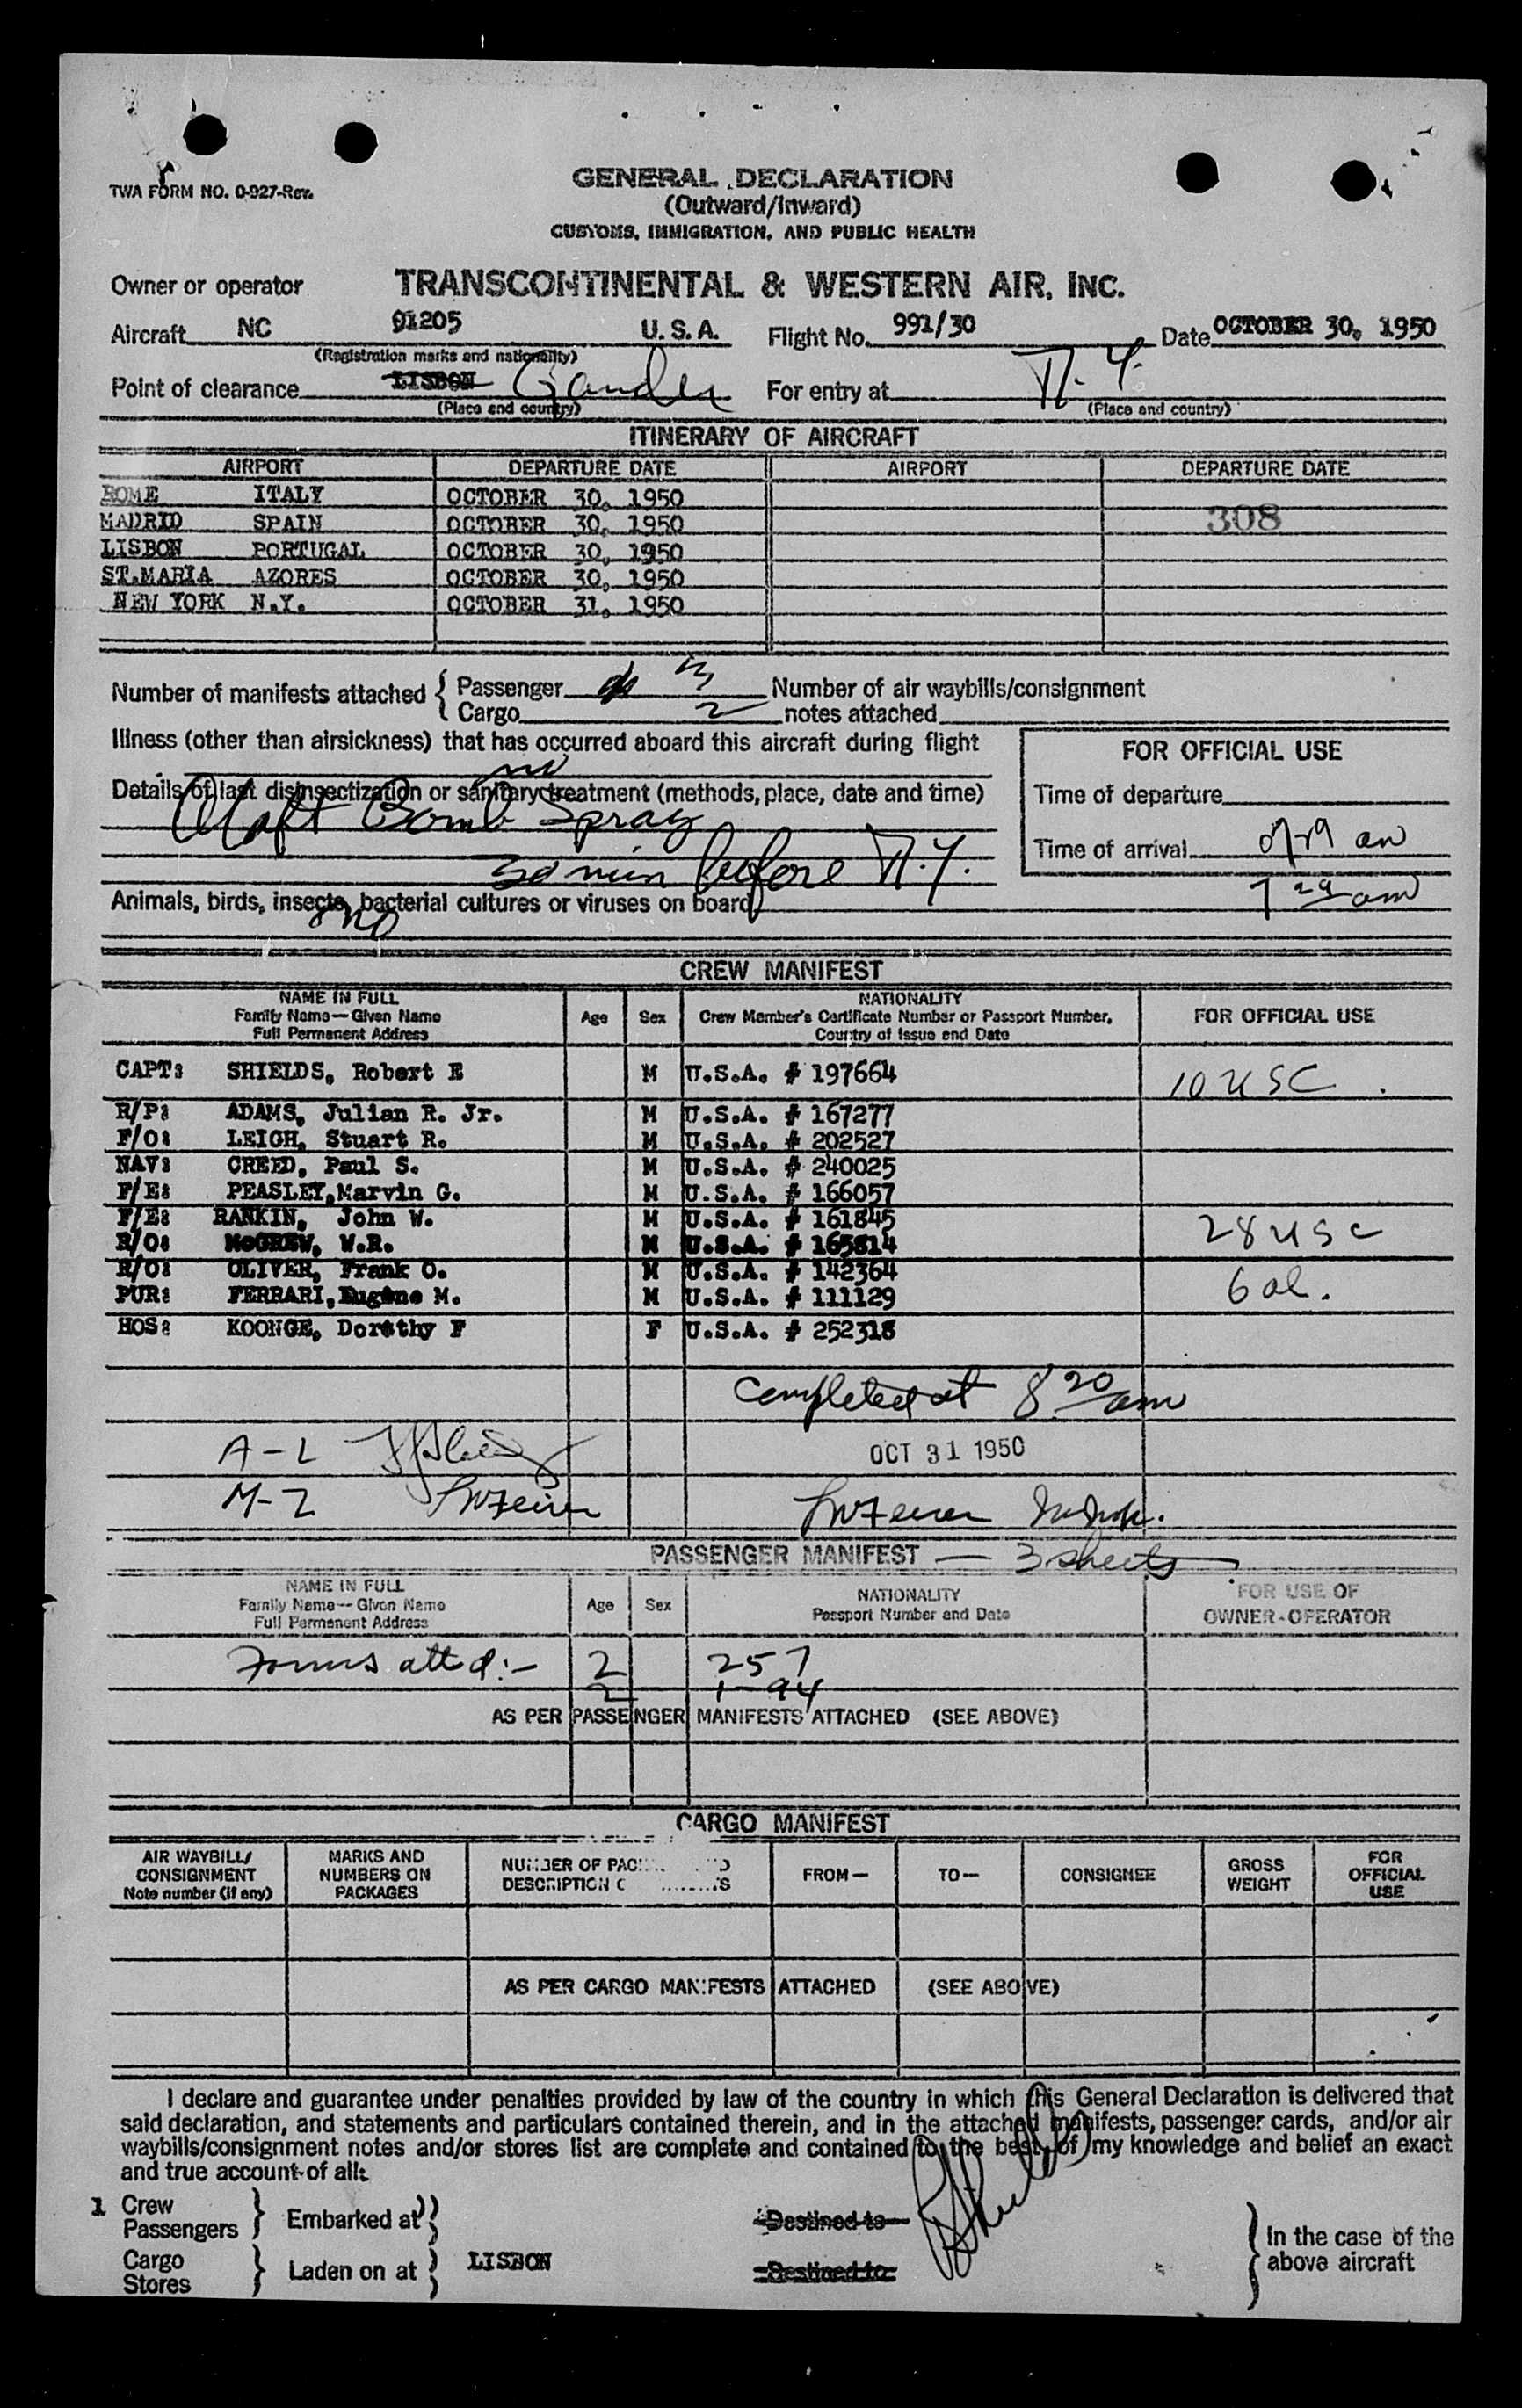 TWA FORM NO. 0-927-Rev.
GENERAL DECLARATION
(Outward/Inward)
CUSTOMS, IMMIGRATION, AND PUBLIC HEALTH
Owner or operator TRANSCONTINENTAL & WESTERN AIR, INC.
Aircraft NC 91205 U.S.A. Flight No. 991/30 Date OCTOBER 30, 1950
(Registration marks and nationality)
Point of clearance LISBON Gander For entry at N.Y.
(Place and country) (Place and country)
ITINERARY OF AIRCRAFT
AIRPORT DEPARTURE DATE AIRPORT DEPARTURE DATE
ROME ITALY OCTOBER 30, 1950
MADRID SPAIN OCTOBER 30, 1950 308
LISBON PORTUGAL OCTOBER 30, 1950
ST.MARIA AZORES OCTOBER 30, 1950
NEW YORK N.Y. OCTOBER 31, 1950
Number of manifests attached { Passenger 3 Number of air waybills/consignment
Cargo 2 notes attached
Illness (other than airsickness) that has occurred aboard this aircraft during flight
no
FOR OFFICIAL USE
Details of last disinsectization or sanitary treatment (methods, place, date and time)
Time of departure
Bomb Spray
Time of arrival
30 min before N.Y.
7 29 am
Animals, birds, insects, bacterial cultures or viruses on board
no
CREW MANIFEST
NAME IN FULL
Family Name—Given Name
Full Permanent Address
Age Sex
NATIONALITY
Crew Member's Certificate Number or Passport Number,
Country of Issue and Date
FOR OFFICIAL USE
CAPT: SHIELDS, Robert E M U.S.A. # 197664 10 USC
R/P: ADAMS, Julian R. Jr. M U.S.A. # 167277
F/O: LEIGH, Stuart R. M U.S.A. # 202527
NAV: CREED, Paul S. M U.S.A. # 240025
F/E: PEASLEY,Marvin G. M U.S.A. # 166057
F/E: RANKIN, John W. M U.S.A. # 161845 28 USC
R/O: McGREW, W.R. M U.S.A. # 165814
R/O: OLIVER, Frank O. M U.S.A. # 142364 6 al.
PUR: FERRARI,Eugene M. M U.S.A. # 111129
HOS: KOONGE, Dorothy F F U.S.A. # 252318
Completed at 8 20 am
A-L
OCT 31 1950
M-Z
PASSENGER MANIFEST — 3 sheets
NAME IN FULL
Family Name—Given Name
Full Permanent Address
Age Sex
NATIONALITY
Passport Number and Date
FOR USE OF
OWNER-OPERATOR
Forms attd:- 2 257
2 1-94
AS PER PASSENGER MANIFESTS ATTACHED (SEE ABOVE)
CARGO MANIFEST
AIR WAYBILL/
CONSIGNMENT
Note number (if any)
MARKS AND
NUMBERS ON
PACKAGES
NUMBER OF
DESCRIPTION
FROM—
TO—
CONSIGNEE
GROSS
WEIGHT
FOR
OFFICIAL
USE
AS PER CARGO MANIFESTS ATTACHED (SEE ABOVE)
I declare and guarantee under penalties provided by law of the country in which this General Declaration is delivered that
said declaration, and statements and particulars contained therein, and in the attached manifests, passenger cards, and/or air
waybills/consignment notes and/or stores list are complete and contained to the best of my knowledge and belief an exact
and true account of all:
1 Crew
Passengers } Embarked at } Destined to
Cargo
Stores } Laden on at } LISBON Destined to
} In the case of the
above aircraft